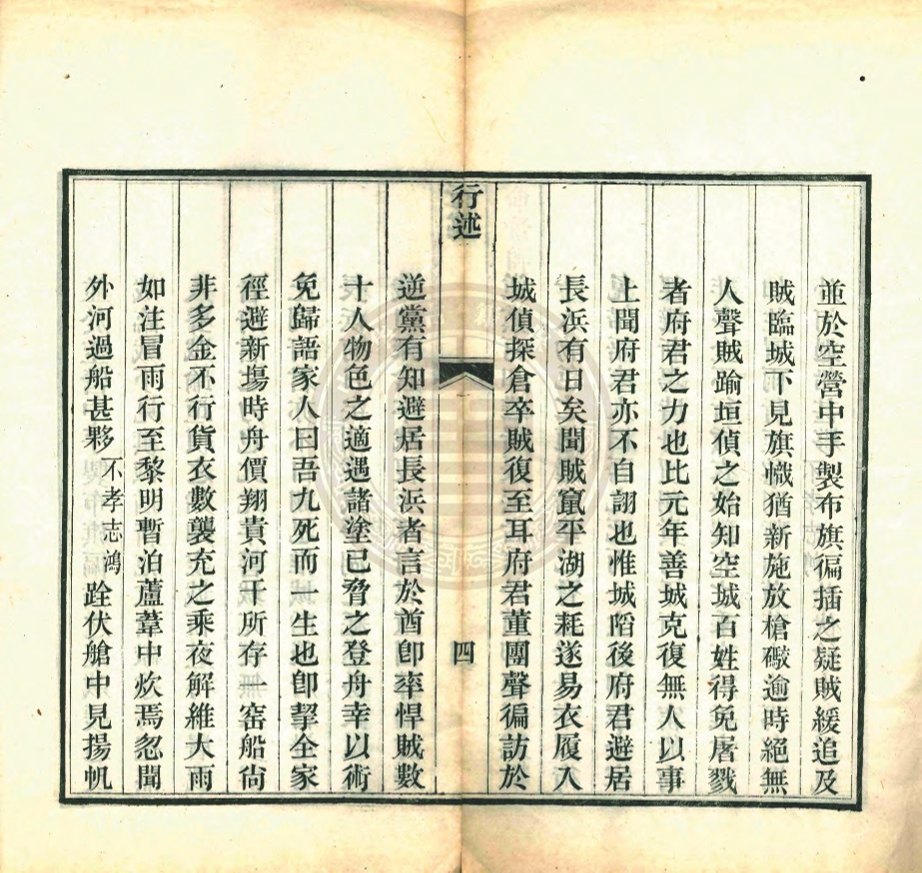 並於空營中手製布旗徧插之疑賊緩追及
賊臨城下見旗幟猶新施放槍礮逾時絕無
人聲賊踰垣偵之始知空城百姓得免屠戮
者府君之力也比元年善城克復無人以事
上聞府君亦不自詡也惟城陷後府君避居
長浜有日矣聞賊竄平湖之耗遂易衣履入
城偵探倉卒賊復至耳府君董團聲徧訪於
行述
四
逆黨有知避居長浜者言於酋卽率悍賊數
十人物色之適遇諸塗已脅之登舟幸以術
免歸語家人曰吾九死而一生也卽挈全家
徑避新塲時舟價翔貴河干所存一窑船尙
非多金不行貨衣數襲充之乘夜解維大雨
如注冒雨行至黎明暫泊蘆葦中炊焉忽聞
外河過船甚夥不孝志鴻跧伏艙中見揚帆